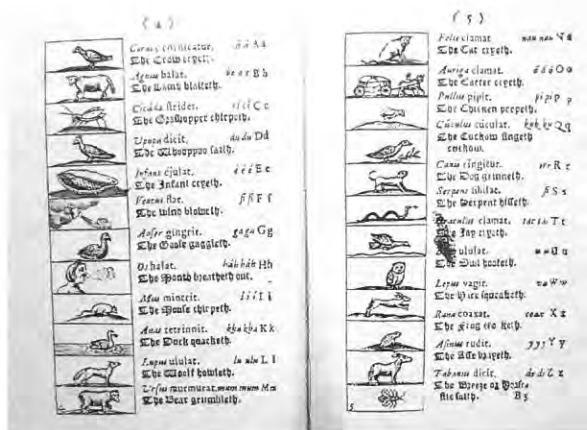 ( 4 )
Cornix cornicatur. á á A a
The Crow cryeth.
Agnus balat. b é é é B b
The Lamb blaiteth.
Cicáda stridet. cì cì C c
The Grashopper chirpeth.
Upupa dicit. du du D d
The Whooppoo saith.
Infans éjulat. é é é E e
The Infant cryeth.
Ventus flat. fi fi F f
The wind bloweth.
Anser gingrit. ga ga G g
The Goose gaggleth.
Os halat. háh háh H h
The Mouth breatheth out.
Mus mintrit. í í í I i
The Mouse chirpeth.
Anas tetrinnit. kha kha K k
The Duck quacketh.
Lupus ululat. lu ulu L l
The Woolf howleth.
Ursus murmurat. mum mum M m
The Bear grumbleth.
( 5 )
Felis clamat. nau nau N n
The Cat cryeth.
Auriga clamat. ó ó ó O o
The Carter cryeth.
Pullus pipit. pi pi P p
The Chicken peepeth.
Cúculus cúculat. kuk ku Q q
The Cuckow singeth
cuckow.
Canis ringitur. err R r
The Dog grinneth.
Serpens sibilat. si S s
The Serpent hisseth.
Graculus clamat. tac tac T t
The Jay cryeth.
ululat. u u U u
The Owl hooteth.
Lepus vagit. va W w
The Hare squeaketh.
Rana coaxat. coax X x
The Frog croaketh.
Asinus rudit. y y y Y y
The Asse brayeth.
Tabanus dicit. ds ds Z z
The Breeze or Horse
flie saith. B 3
5